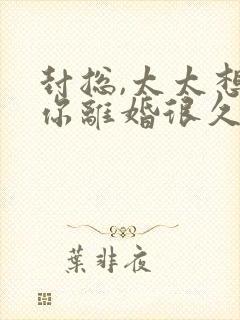 封总,太太想
你離婚很久
葉非夜